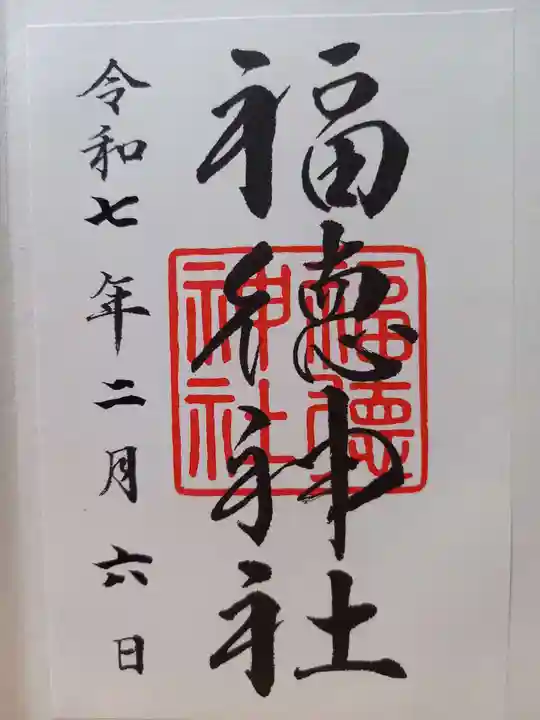 福徳神社
福徳
神社
令和七年二月六日